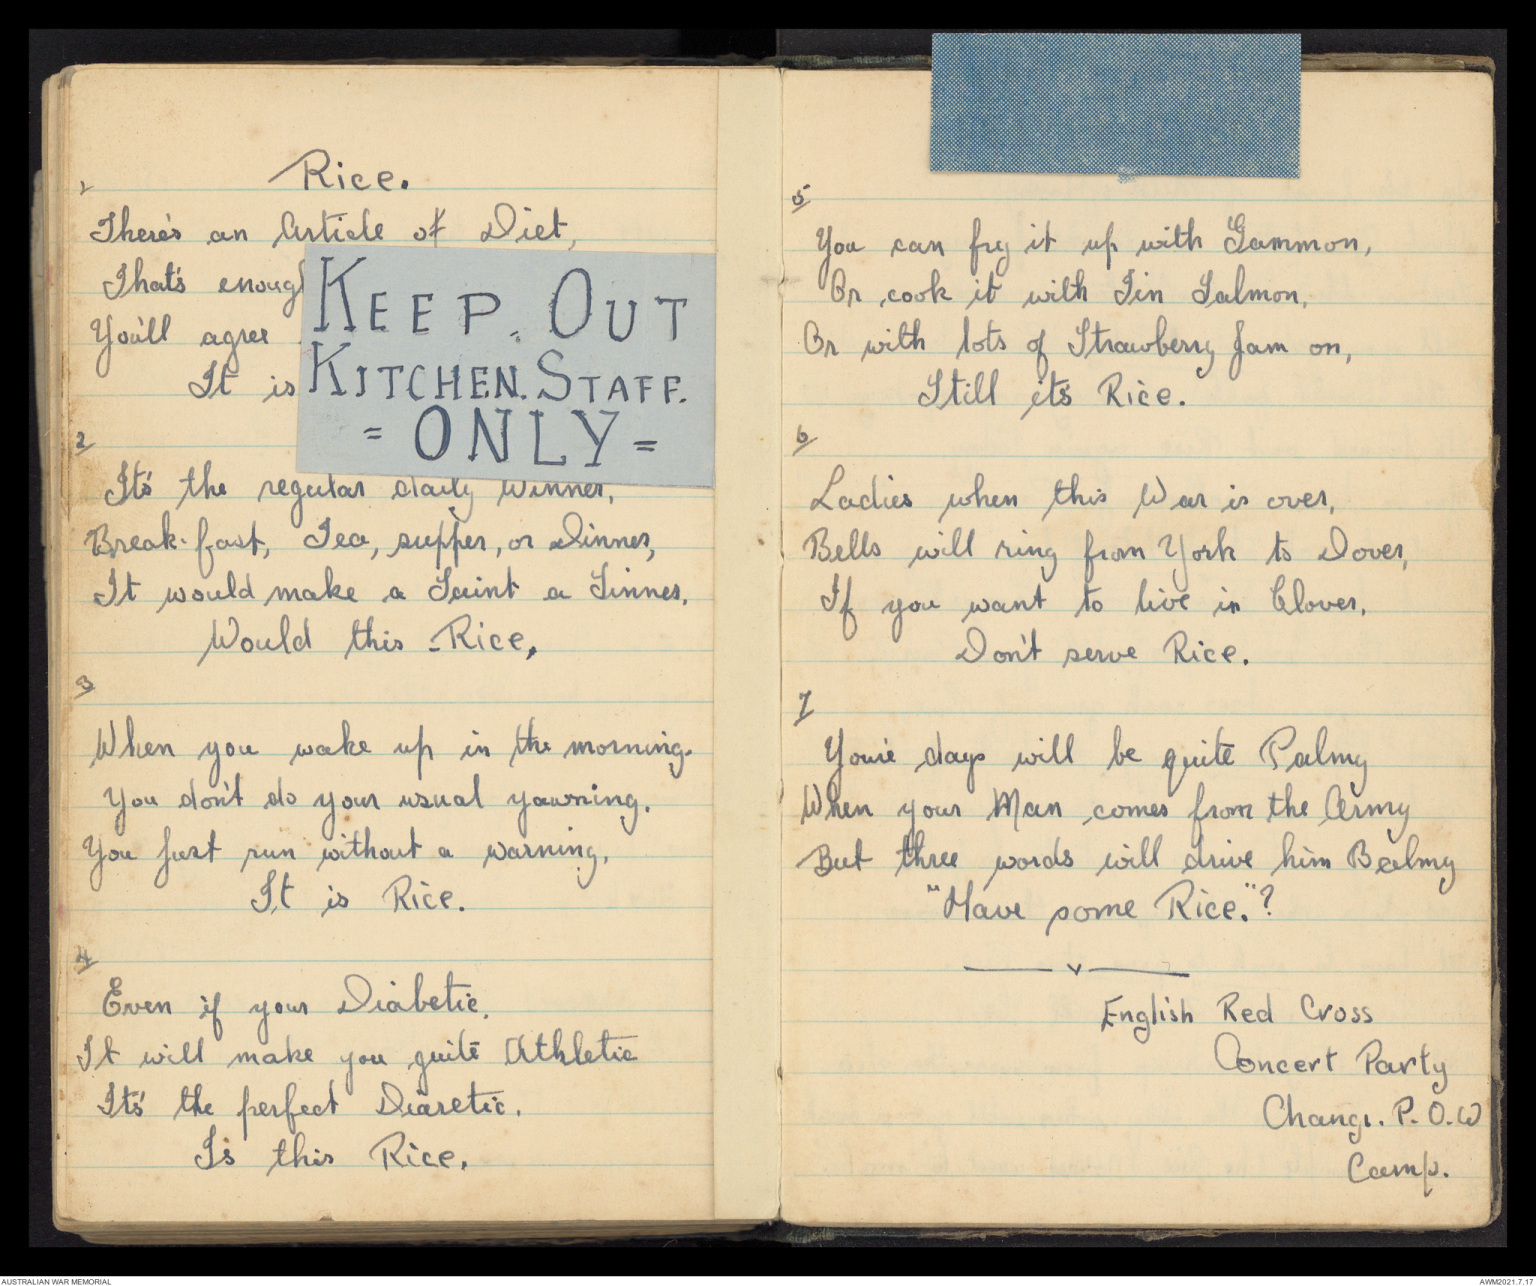 Rice.
1
There's an Article of Diet,
That's enoug
You'll agree
It is
KEEP. OUT
KITCHEN. STAFF.
= ONLY =
2
It's the regular daily winner,
Break-fast, Tea, supper, or Dinner,
It would make a Saint a Sinner,
Would this Rice,
3
When you wake up in the morning.
You don't do your usual yawning.
You just run without a warning,
It is Rice.
4
Even if your Diabetic,
It will make you quite Athletic
It's the perfect Diaretic,
Is this Rice,
5
You can fry it up with Gammon,
Or cook it with Tin Salmon,
Or with lots of Strawberry Jam on,
Still it's Rice.
6
Ladies when this War is over,
Bells will ring from York to Dover,
If you want to live in Clover,
Don't serve Rice.
7
Your'e days will be quite Palmy
When your Man comes from the Army
But three words will drive him Balmy
"Have some Rice."?
English Red Cross
Concert Party
Changi. P. O. W
Camp.
AUSTRALIAN WAR MEMORIAL
AWM2021.7.17